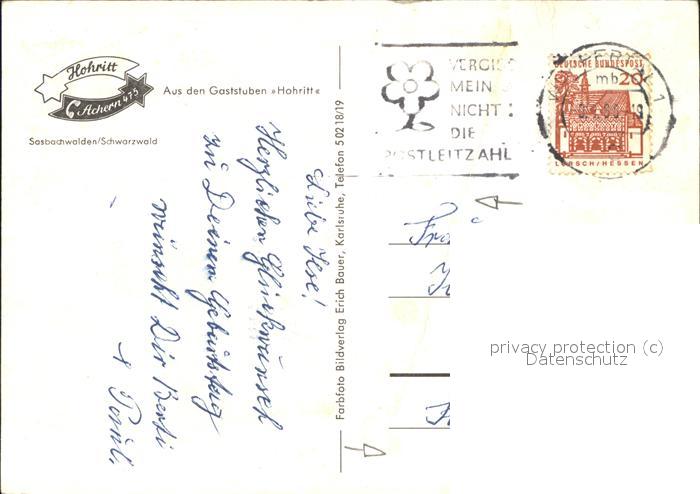 Hohritt
Achern 475
Aus den Gaststuben »Hohritt«
Sasbachwalden/Schwarzwald
Liebe Ilse!
Herzlichen Glückwunsch
zu Deinem Geburtstag
wünscht Dir Berti
+ Paul.
Farbfoto Bildverlag Erich Bauer, Karlsruhe, Telefon 50218/19
VERGISS
MEIN
NICHT:
DIE
POSTLEITZAHL
DEUTSCHE BUNDESPOST
20
mb
LORSCH/HESSEN
Fra
privacy protection (c)
Datenschutz